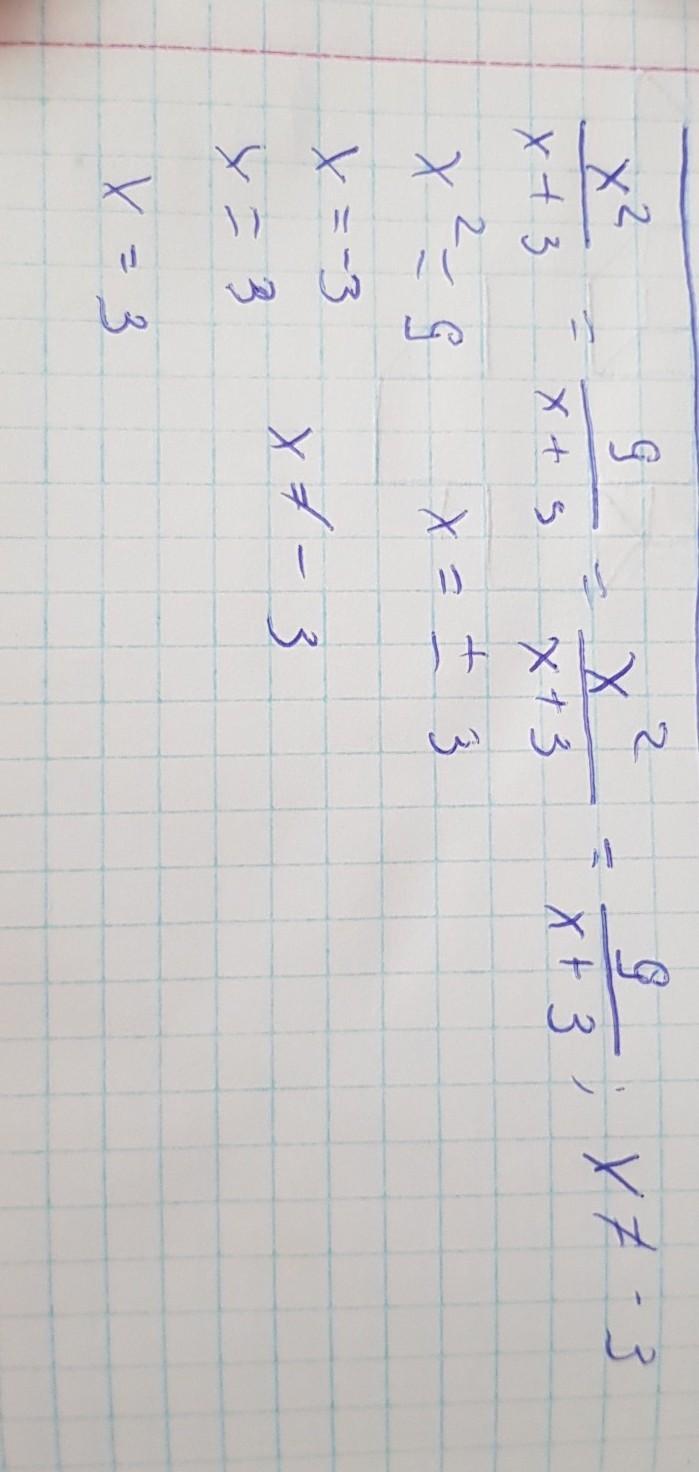 x²/(x+3) = 9/(x+3) = x²/(x+3) = 9/(x+3); x ≠ -3
x² = 9 x = ± 3
x = -3
x = 3 x ≠ -3
x = 3